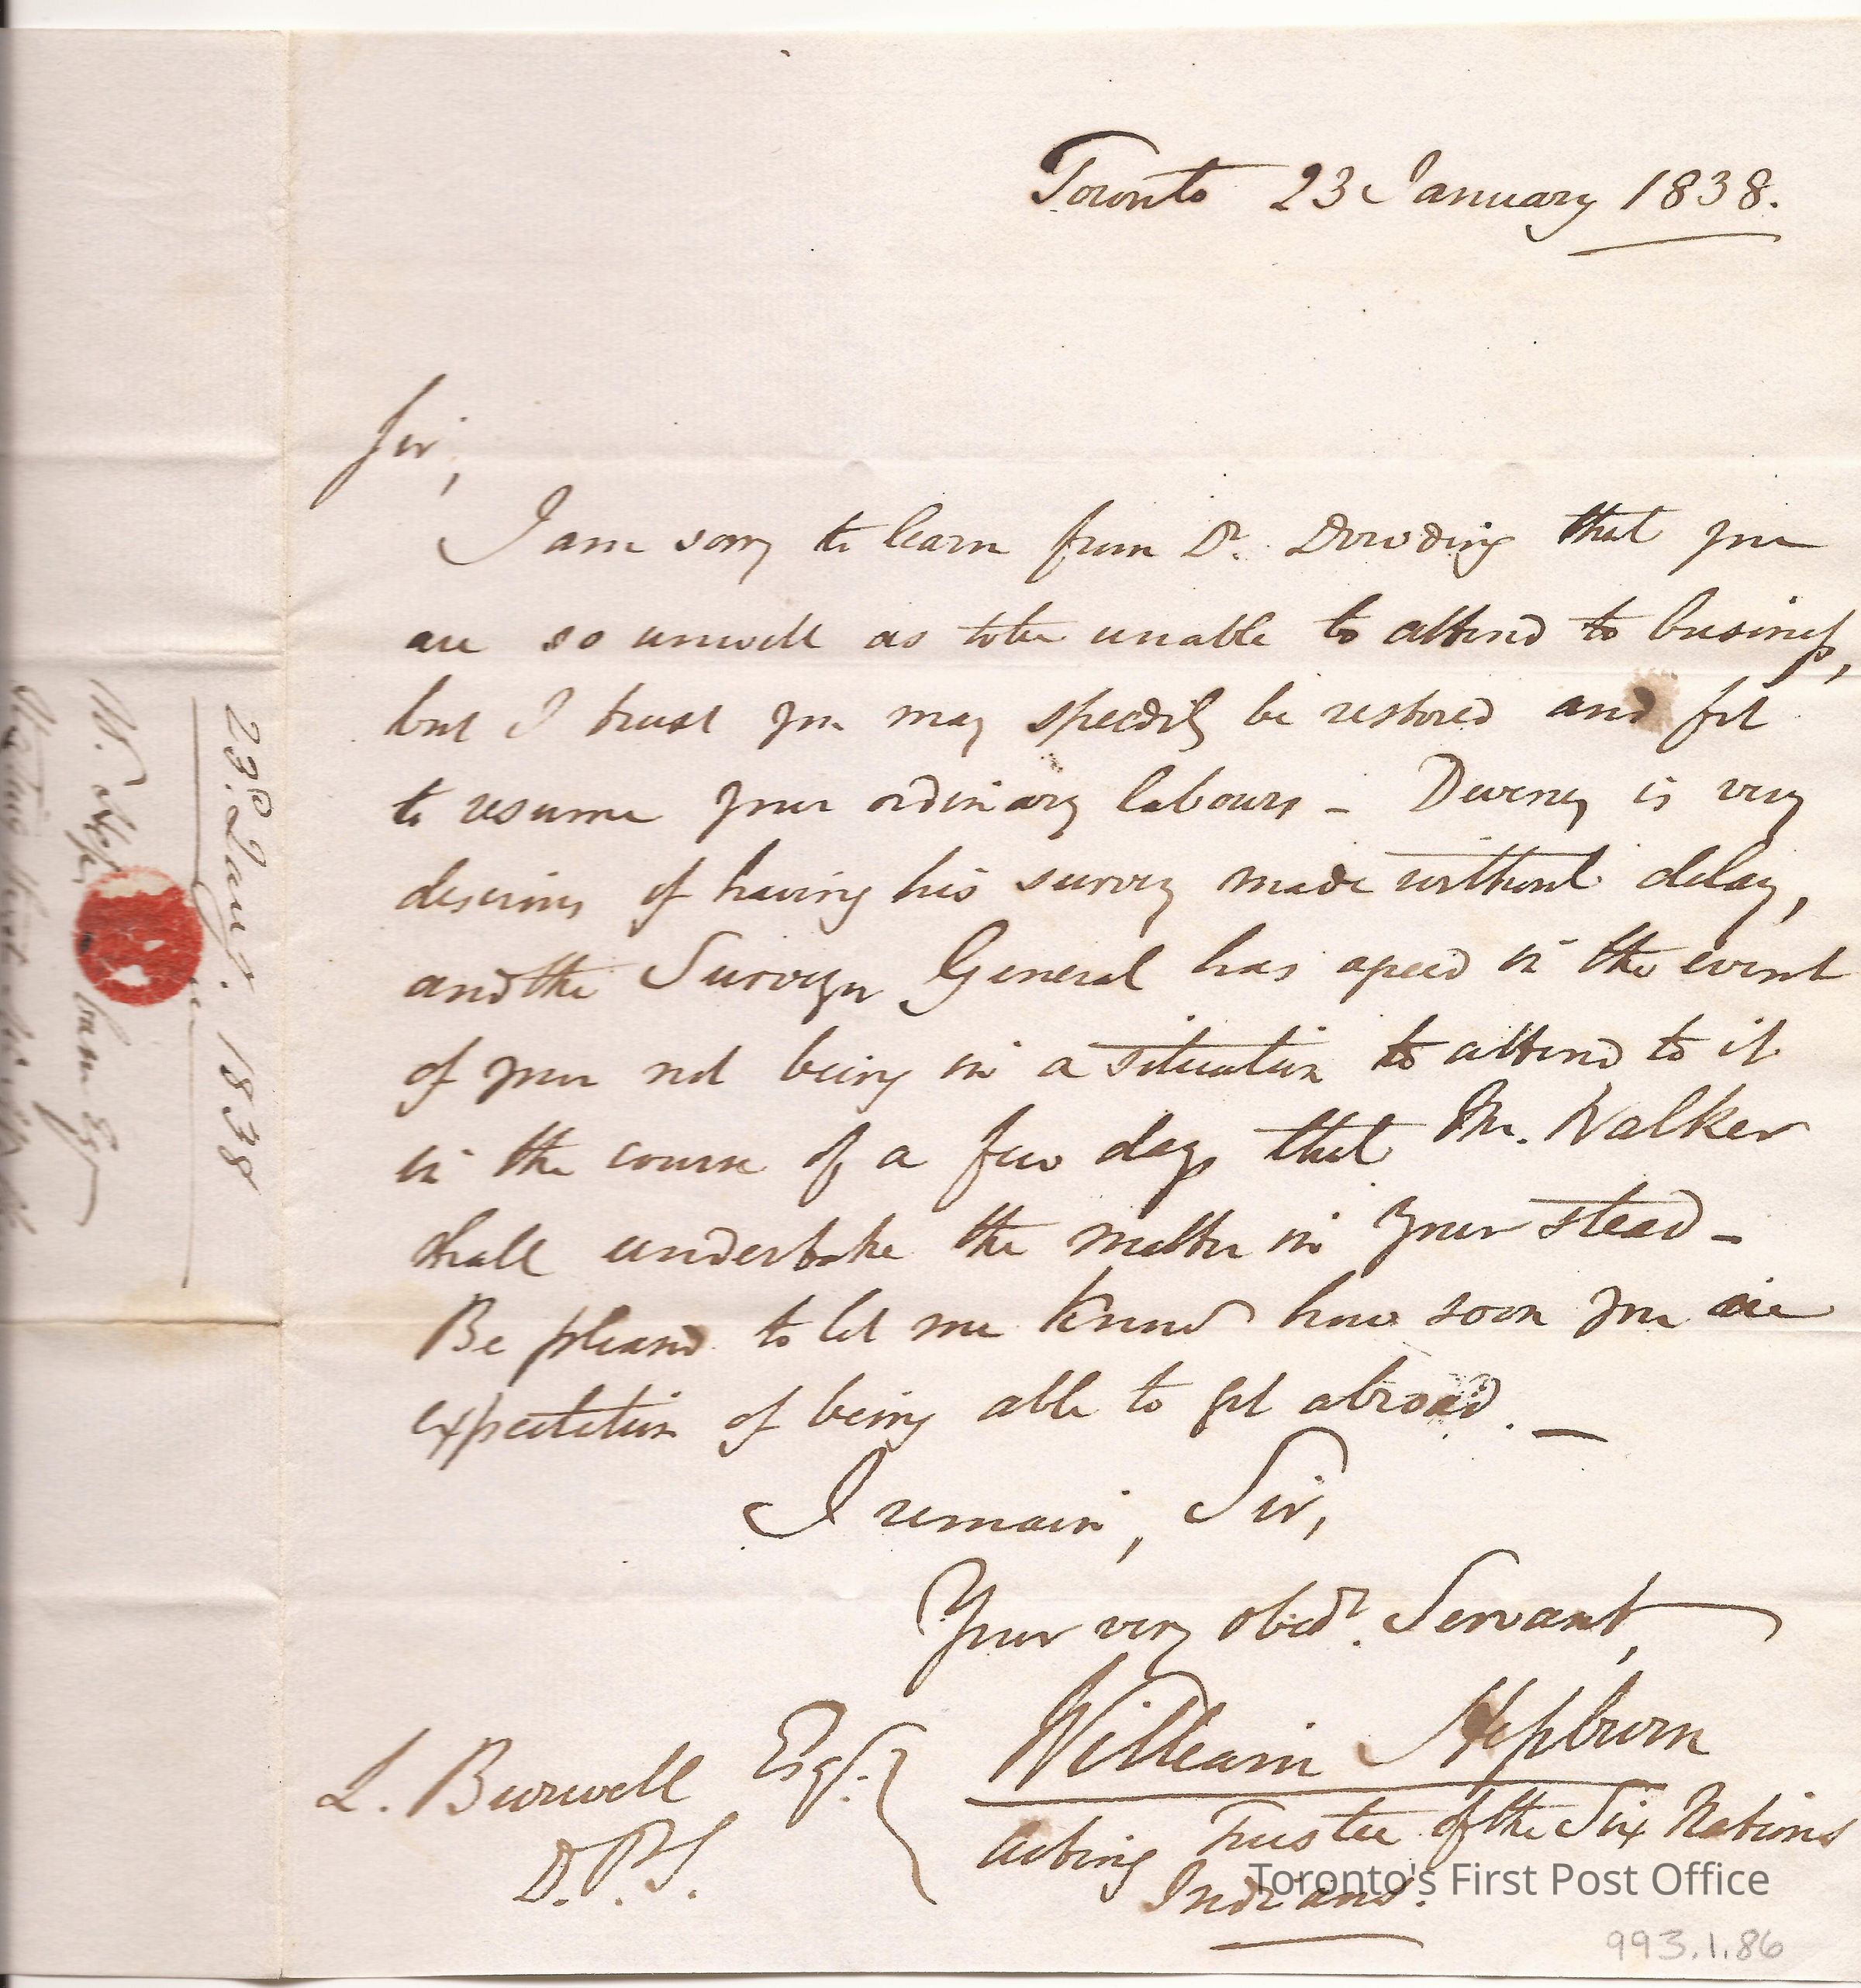 Toronto 23 January 1838.
Sir,
I am sorry to learn from Dr. Dowding that you
are so unwell as to be unable to attend to business,
but I trust you may speedily be restored and fit
to resume your ordinary labours – Devены is very
desirous of having his survey made without delay,
and the Surveyor General has agreed in the event
of your not being in a situation to attend to it
in the course of a few days that Mr. Walker
shall undertake the matter in your stead –
Be pleased to let me know how soon you are
expectation of being able to get abroad. —
I remain, Sir,
Your very obedt. Servant,
William Hepburn
Acting Trustee of the Six Nations
Indians.
L. Burwell Esqr.
D.P.S.
23d. Jany. 1838
W. Esqr
Toronto's First Post Office
993.1.86